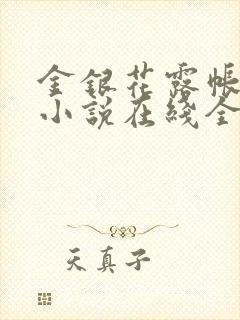 金銀花露帳
小說在綫全
天真子